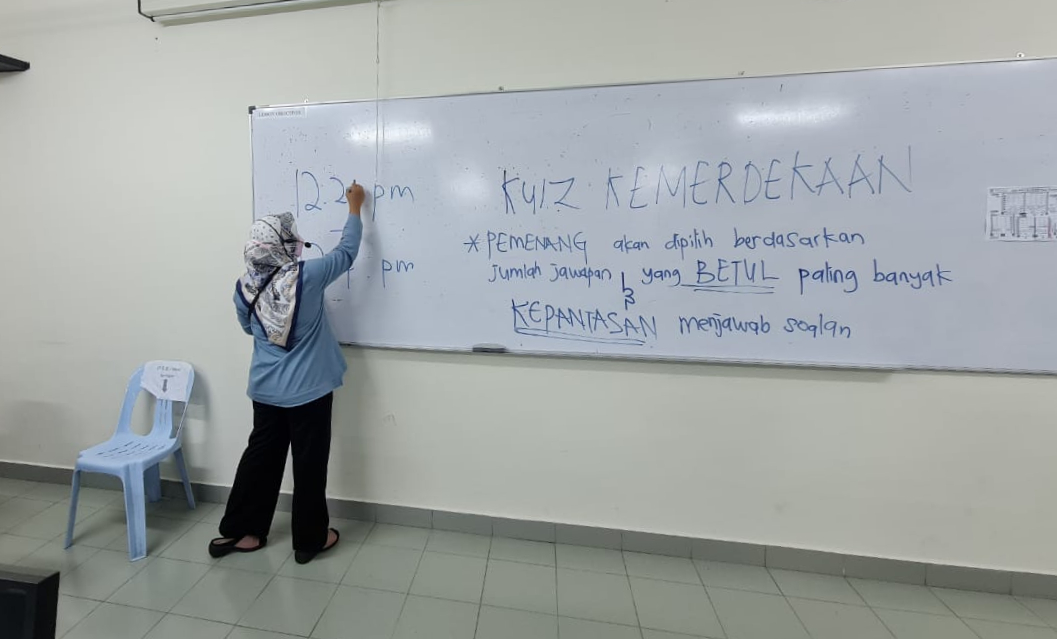 12.2 pm
pm
KUIZ KEMERDEKAAN
* PEMENANG akan dipilih berdasarkan
jumlah jawapan yang BETUL paling banyak
&
KEPANTASAN menjawab soalan